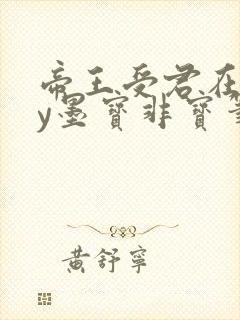 帝王受君在
y墨寶非寶筆
黃舒寧